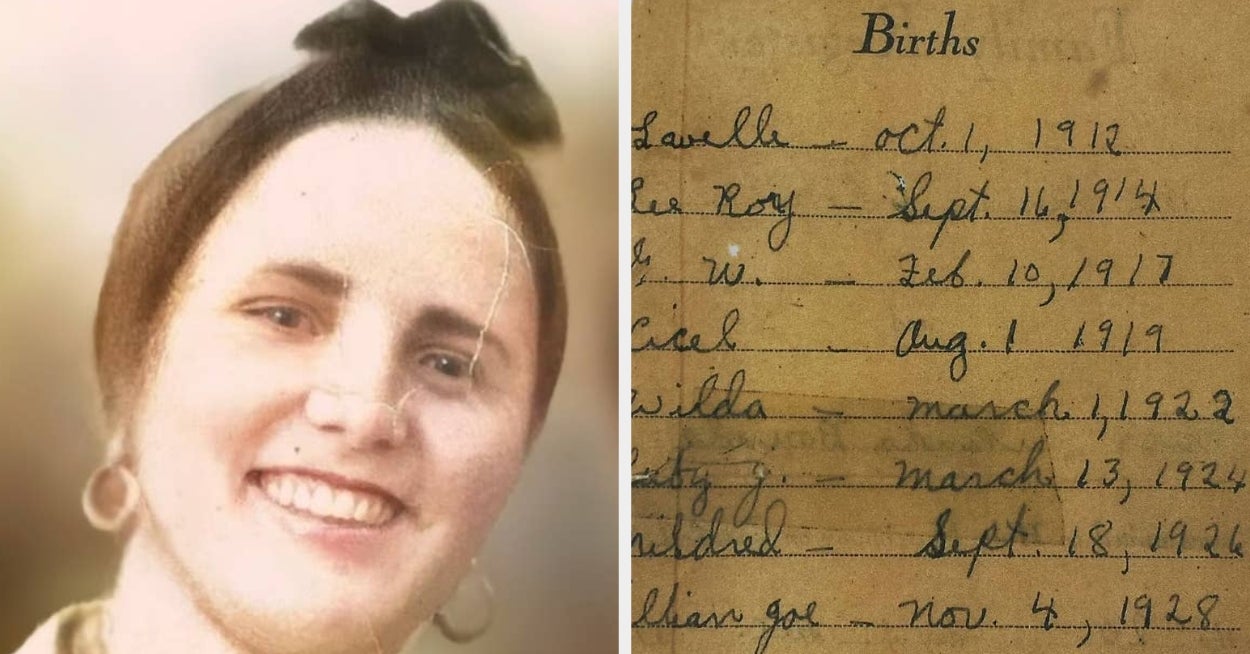 Births
Lavelle - oct. 1, 1912
Lee Roy - Sept. 16, 1914
W. - Feb. 10, 1917
Cicel - Aug. 1 1919
Wilda - march 1, 1922
J. - march 13, 1924
mildred - Sept. 18, 1926
llian Joe - nov. 4, 1928